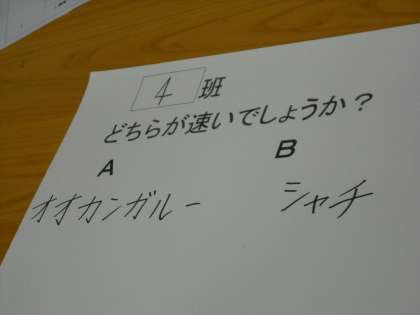 4 班
どちらが速いでしょうか？
A B
オオカンガルー シャチ